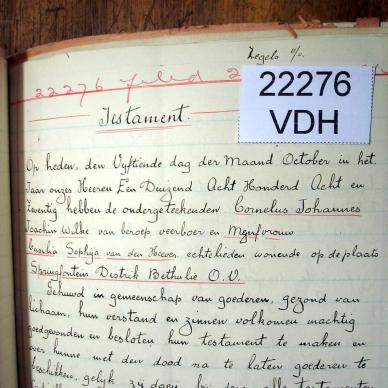 Zegels
22276 filed 2
22276
VDH
Testament.
Op heden, den Vyftiende dag der Maand October in het
Jaar onzes Heeren Een Duizend Acht Honderd Acht en
Zeventig hebben de ondergeteekenden Cornelus Johannes
Joachim Wilke van beroep veerboer en Mejufvrouw
Cecilia Sophia van den Heever echtelieden wonende op de plaats
Springfontein Distrik Bethulie O.V.
Gehuwd in gemeenschap van goederen, gezond van
lichaam, hun verstand en zinnen volkomen machtig
goedgevonden en besloten hun testament te maken en
over hunne met den dood na te laten goederen te
beschikken, gelyk zy doen by deze